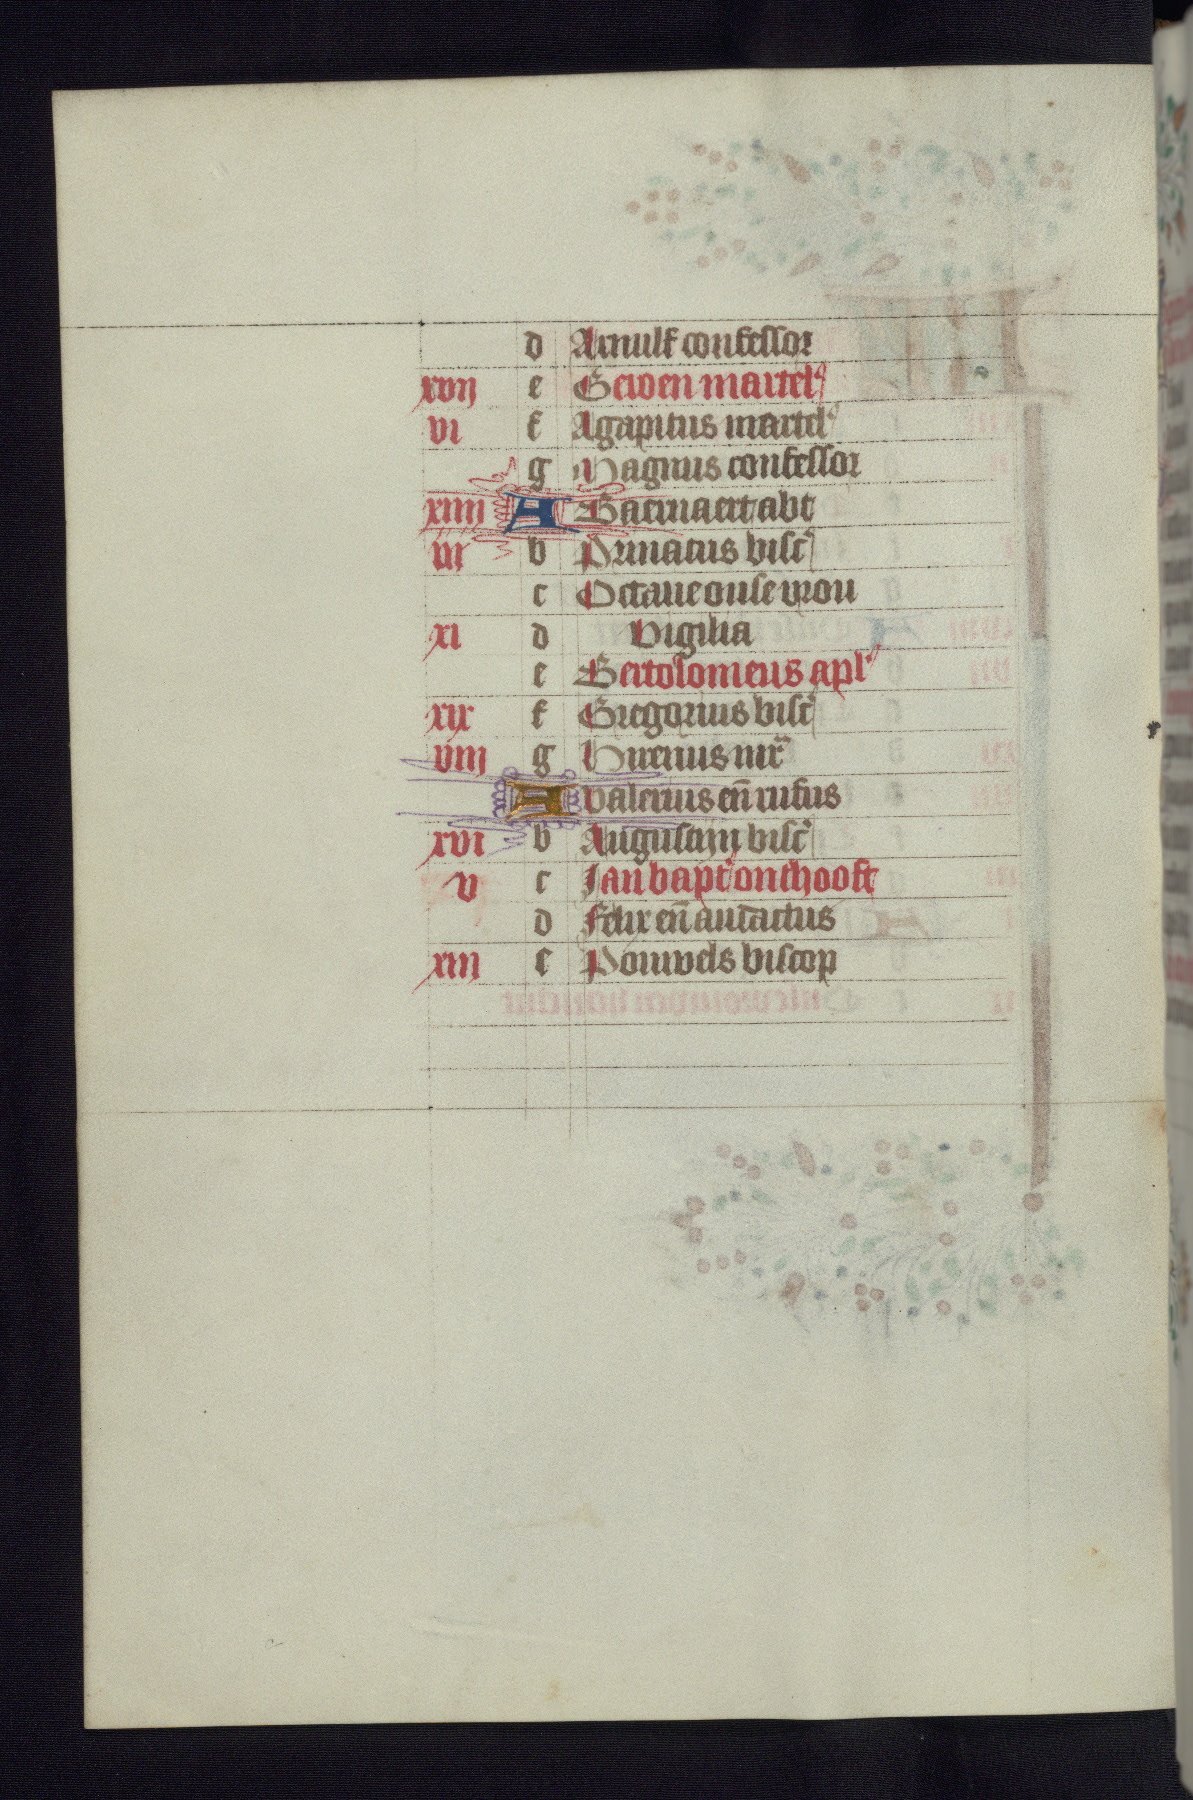 d Arnulf confessor
xvij e Gewen martel⁹
vi f Agapitus martel⁹
g Magnus confessor
xiiij A Baernaert abt
iij b Privatus bisc̉
c Octave onse vrou
xi d Vigilia
e Bertolomeus apl̉
xix f Gregorius bisc̉
viij g Hireniis mr̄
A Valerius en̄ rufus
xvi b Augustijn bisc̉
v c Jan bapt̉ onthooft
d Felix en̄ audactus
xiij e Pouwels biscop